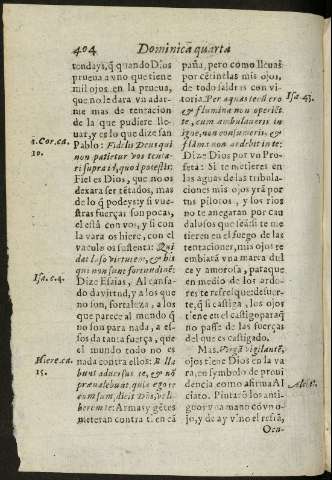 404 Dominica quarta
tonday s, q̃ quando Dios
prueua a vno que tiene
mil ojos en la prueua,
que no le dara vn adar-
me mas de tentacion
de la que pudiere lle-
uar, y es lo que dize san
1.Cor.ca.
10.
Pablo: Fidelis Deus qui
non patietur vos tenta-
ri supra id, quod potestis:
Fiel es Dios, que no os
dexara ser tẽtados, mas
de lo q̃ podeys: y si vue-
stras fuerças son pocas,
el està con vos, y si con
la vara os hiere, con el
vaculo os sustenta: Qui
dat lasso virtutem, & his
qui non sunt fortitudinẽ:
Isa.c.4.
Dize Esaias, Al cansa-
do da virtud, y a los que
no son, fortaleza, a los
que parece al mundo q̃
no son para nada, a es-
sos da tanta fuerça, que
el mundo todo no es
Hiere.ca.
15.
nada contra ellos: Bella-
bunt aduersus te, & nõ
præualebunt, quia ego te
cum sum, dicit Dñs, vt li
berem te: Armas y gẽtes
meteran contra ti, en ca
paña, pero como lleuas
por cẽtinelas mis ojos,
de todo saldras con vi-
toria. Per aquas tecũ ero
Isa.43.
& flumina non operiẽt
te, cum ambulaueris in
igne, non combureris, &
flãma non ardebit in te:
Dize Dios por vn Pro-
feta: Si te metieres en
las aguas de las tribula-
ciones mis ojos yrã por
tus pilotos, y los rios
no te anegaran por cau
dalosos que seã: si te me
tieren en el fuego de las
tentaciones, mis ojos te
embiatã vna marea dul
ce y amorosa, para que
en medio de los ardo-
res te refresque: de suer-
te, q̃ si castiga, los ojos
tiene en el castigo para q̃
no passe de las fuerças
del que es castigado.
Mas. Virgã vigilantẽ,
ojos tiene Dios en la va
ra, en symbolo de proui
dencia como afirma Al
Alciat.
ciato. Pintarõ los anti-
guos vna mano cõ vn o-
jo, y de ay vino el refrã,
Ocu-